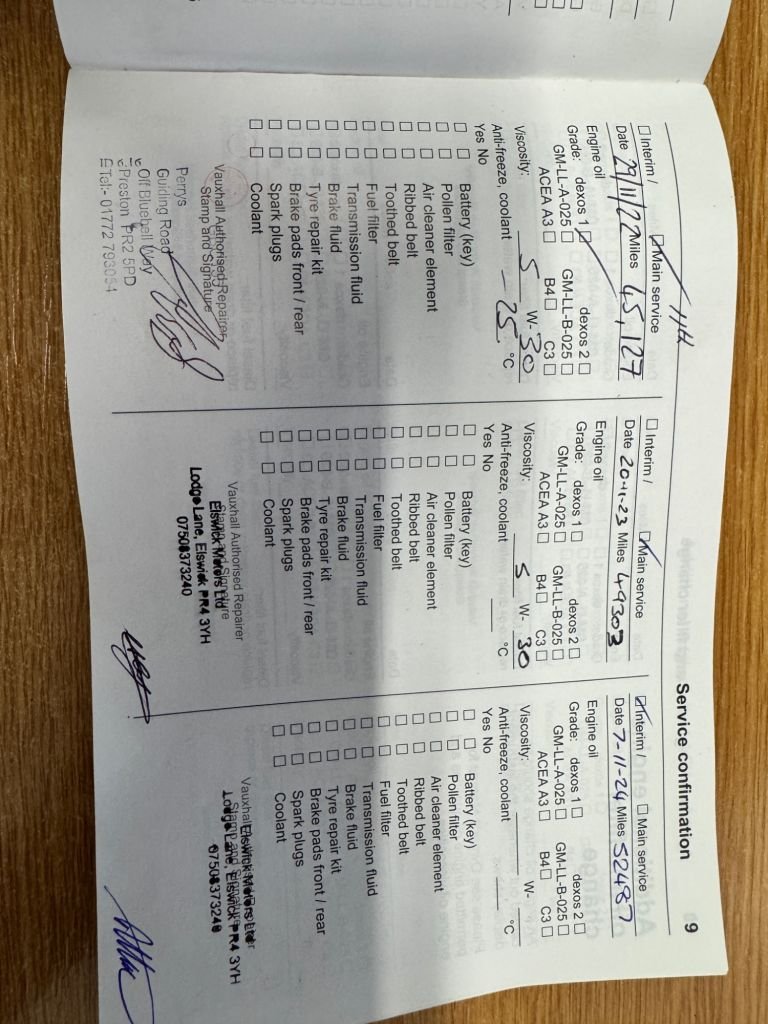 Service confirmation
9
11H
Interim /
Main service
Date 29/11/22 Miles 45,127
Engine oil
Grade: dexos 1 dexos 2
GM-LL-A-025 GM-LL-B-025
ACEA A3 B4 C3
Viscosity: 5 W- 30
Anti-freeze, coolant -25 °C
Yes No
Battery (key)
Pollen filter
Air cleaner element
Ribbed belt
Toothed belt
Fuel filter
Transmission fluid
Brake fluid
Tyre repair kit
Brake pads front / rear
Spark plugs
Coolant
Vauxhall Authorised Repairer
Stamp and Signature
Perrys
Guiding Road
Off Bluebell Way
Preston PR2 5PD
Tel:- 01772 793054
Interim / Main service
Date 20-11-23 Miles 49303
Engine oil
Grade: dexos 1 dexos 2
GM-LL-A-025 GM-LL-B-025
ACEA A3 B4 C3
Viscosity: 5 W- 30
Anti-freeze, coolant °C
Yes No
Battery (key)
Pollen filter
Air cleaner element
Ribbed belt
Toothed belt
Fuel filter
Transmission fluid
Brake fluid
Tyre repair kit
Brake pads front / rear
Spark plugs
Coolant
Vauxhall Authorised Repairer
Stamp and Signature
Elswick Motors Ltd
Lodge Lane, Elswick PR4 3YH
07508373240
Interim / Main service
Date 7-11-24 Miles 52487
Engine oil
Grade: dexos 1 dexos 2
GM-LL-A-025 GM-LL-B-025
ACEA A3 B4 C3
Viscosity: W-
Anti-freeze, coolant °C
Yes No
Battery (key)
Pollen filter
Air cleaner element
Ribbed belt
Toothed belt
Fuel filter
Transmission fluid
Brake fluid
Tyre repair kit
Brake pads front / rear
Spark plugs
Coolant
Vauxhall Authorised Repairer
Stamp and Signature
Elswick Motors Ltd
Lodge Lane, Elswick PR4 3YH
07508373240